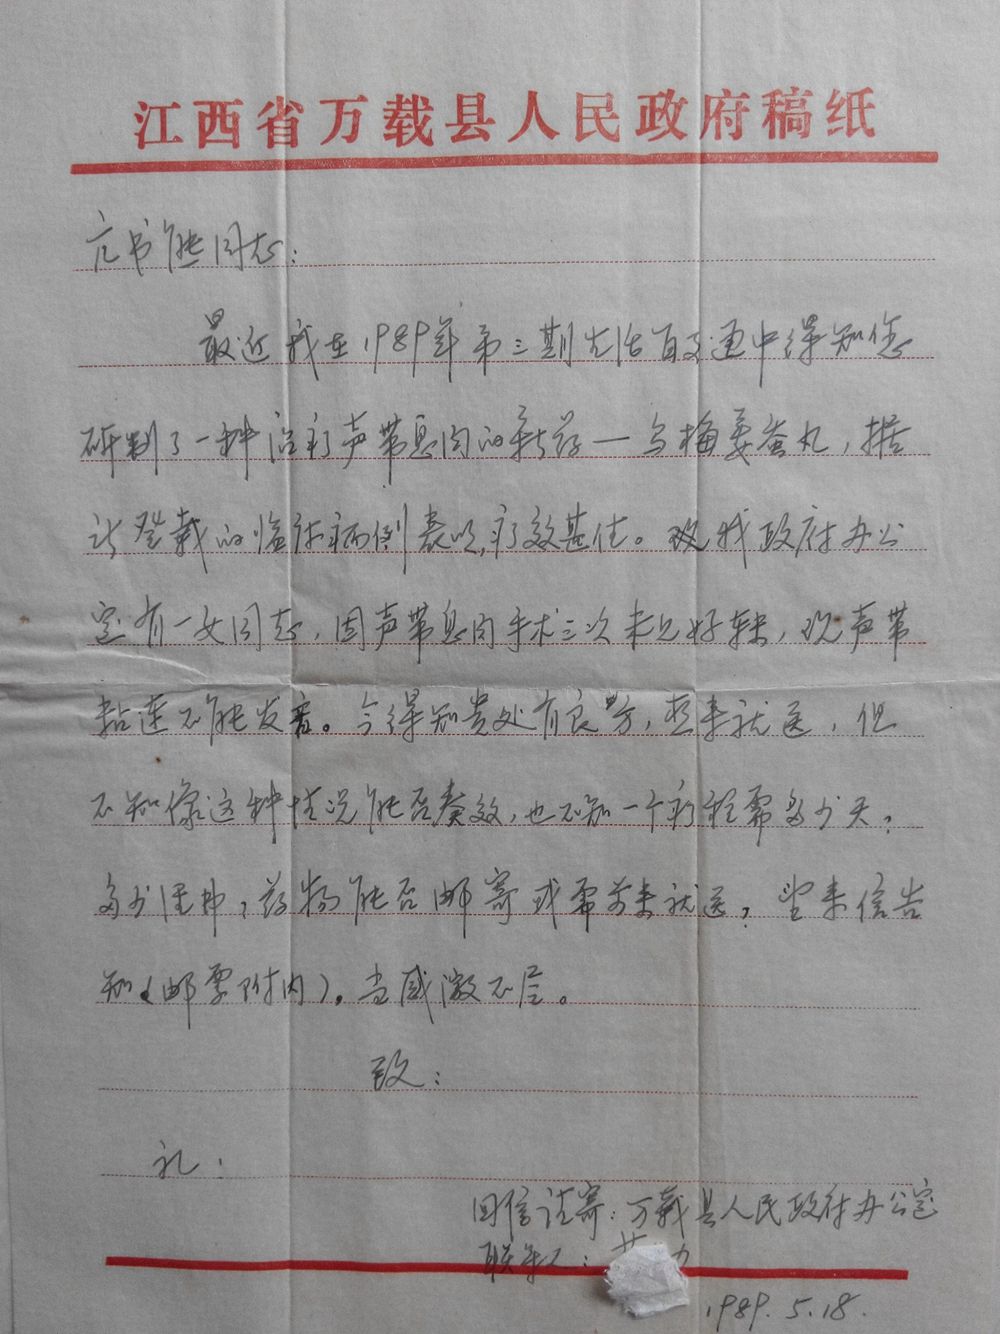 江西省万载县人民政府稿纸
亢书能同志：
最近我在1989年第三期生活百事通中得知您
研制了一种治疗声带息肉的新药—乌梅姜蚕丸，据
试登载的临床病例表明，疗效甚佳。现我政府办公
室有一女同志，因声带息肉手术三次未见好转，现声带
粘连不能发音。今得知贵处有良方，想来就医，但
不知像这种情况能否奏效，也不知一个疗程需多少天，
多少经，药物能否邮寄或需前来就医，望来信告
知（邮票附内）。当感激不尽。
致：
礼：
回信请寄：万载县人民政府办公室
联系人：
1989.5.18.